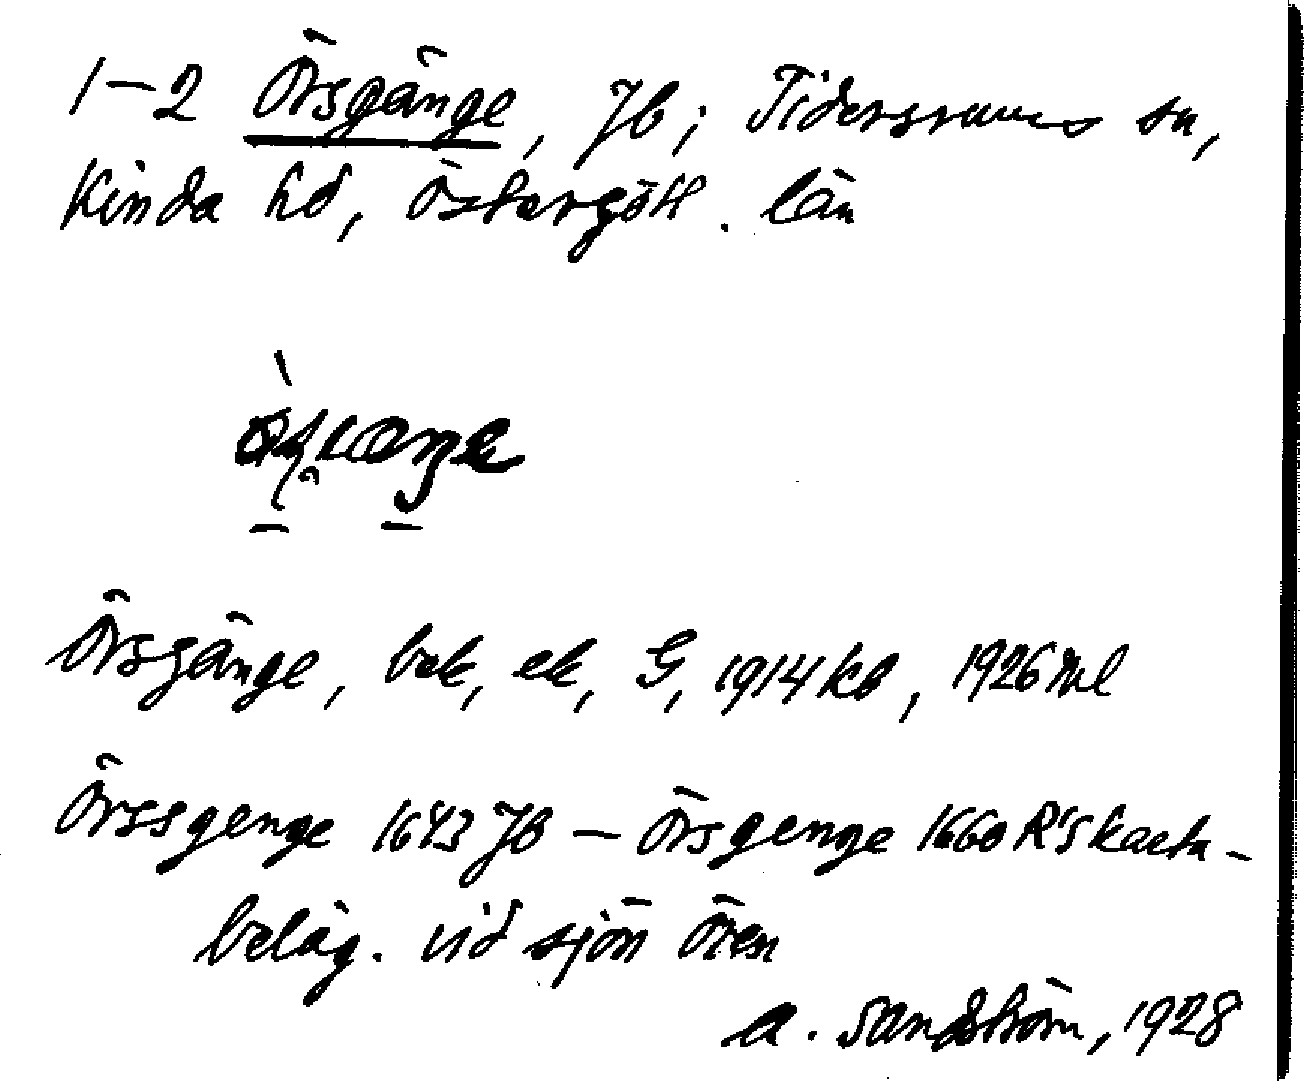 1–2 Örsgänge, Jb; Tidersrums sn,
Kinda hd, Östergötl. län
Örsgänge, bok, ek, G, 1914 kb, 1926 ml
Örssgenge 1643 Jb – Örsgenge 1660 R's karta –
beläg. vid sjön Ören
A. Sandström, 1928